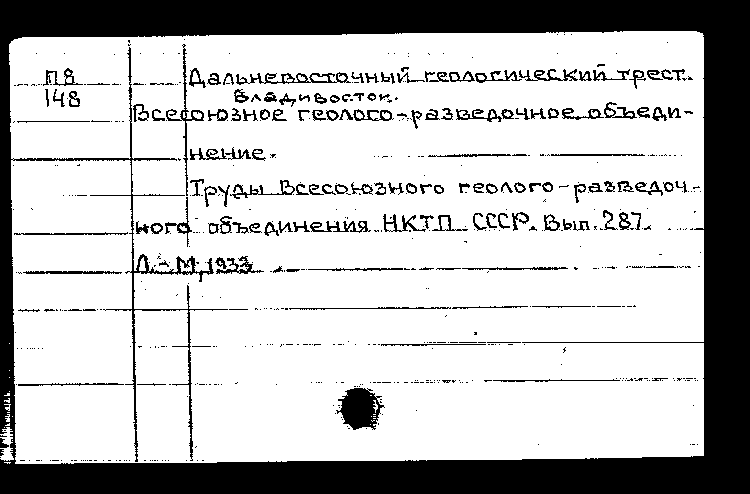 П8
148
Дальневосточный геологический трест.
Владивосток.
Всесоюзное геолого-разведочное объеди-
нение.
Труды Всесоюзного геолого-разведоч-
ного объединения НКТП СССР. Вып. 287.
Л.-М, 1933